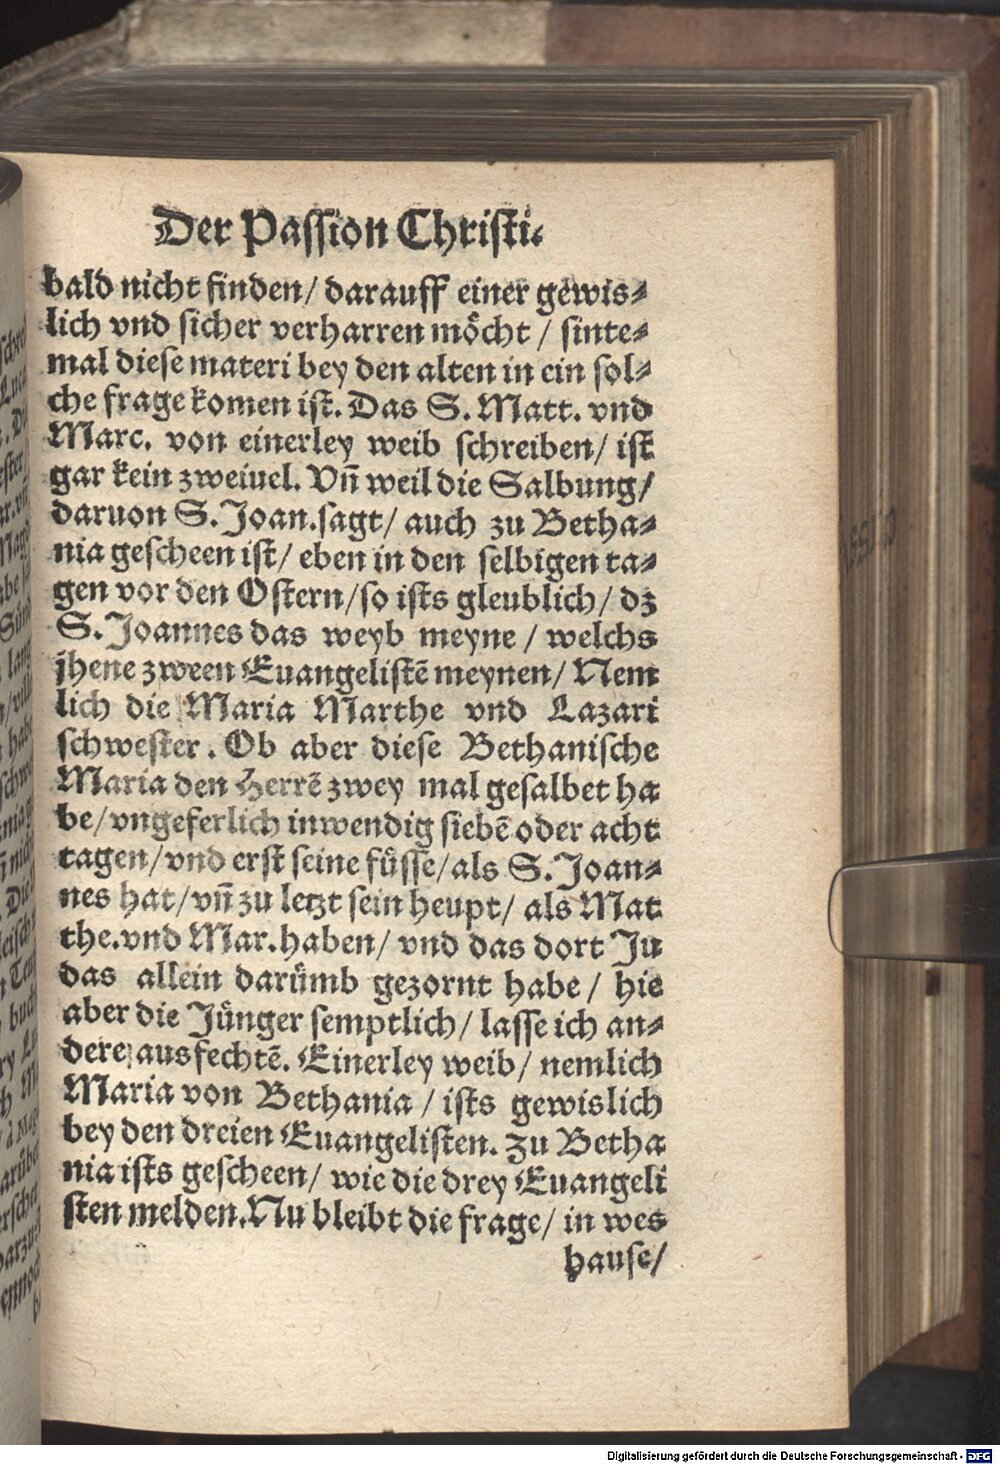 Der Passion Christi.
bald nicht finden/ darauff einer gewis⸗
lich vnd sicher verharren möcht / sinte⸗
mal diese materi bey den alten in ein sol⸗
che frage komen ist. Das S. Matt. vnd
Marc. von einerley weib schreiben/ ist
gar kein zweiuel. Vñ weil die Salbung/
daruon S. Joan.sagt/ auch zu Betha⸗
nia gescheen ist/ eben in den selbigen ta⸗
gen vor den Ostern/so ists gleublich/ dz
S. Joannes das weyb meyne / welchs
jhene zween Euangelistẽ meynen/ Nem
lich die Maria Marthe vnd Lazari
schwester. Ob aber diese Bethanische
Maria den Herrẽ zwey mal gesalbet ha
be/vngeferlich inwendig siebẽ oder acht
tagen/vnd erst seine füsse/als S. Joan⸗
nes hat/vñ zu letzt sein heupt/ als Mat
the.vnd Mar.haben/ vnd das dort Ju
das allein darümb gezornt habe / hie
aber die Jünger semptlich/ lasse ich an⸗
dere ausfechtẽ. Einerley weib/ nemlich
Maria von Bethania / ists gewislich
bey den dreien Euangelisten. Zu Betha
nia ists gescheen/ wie die drey Euangeli
sten melden.Nu bleibt die frage/ in wes
hause/
Digitalisierung gefördert durch die Deutsche Forschungsgemeinschaft - DFG